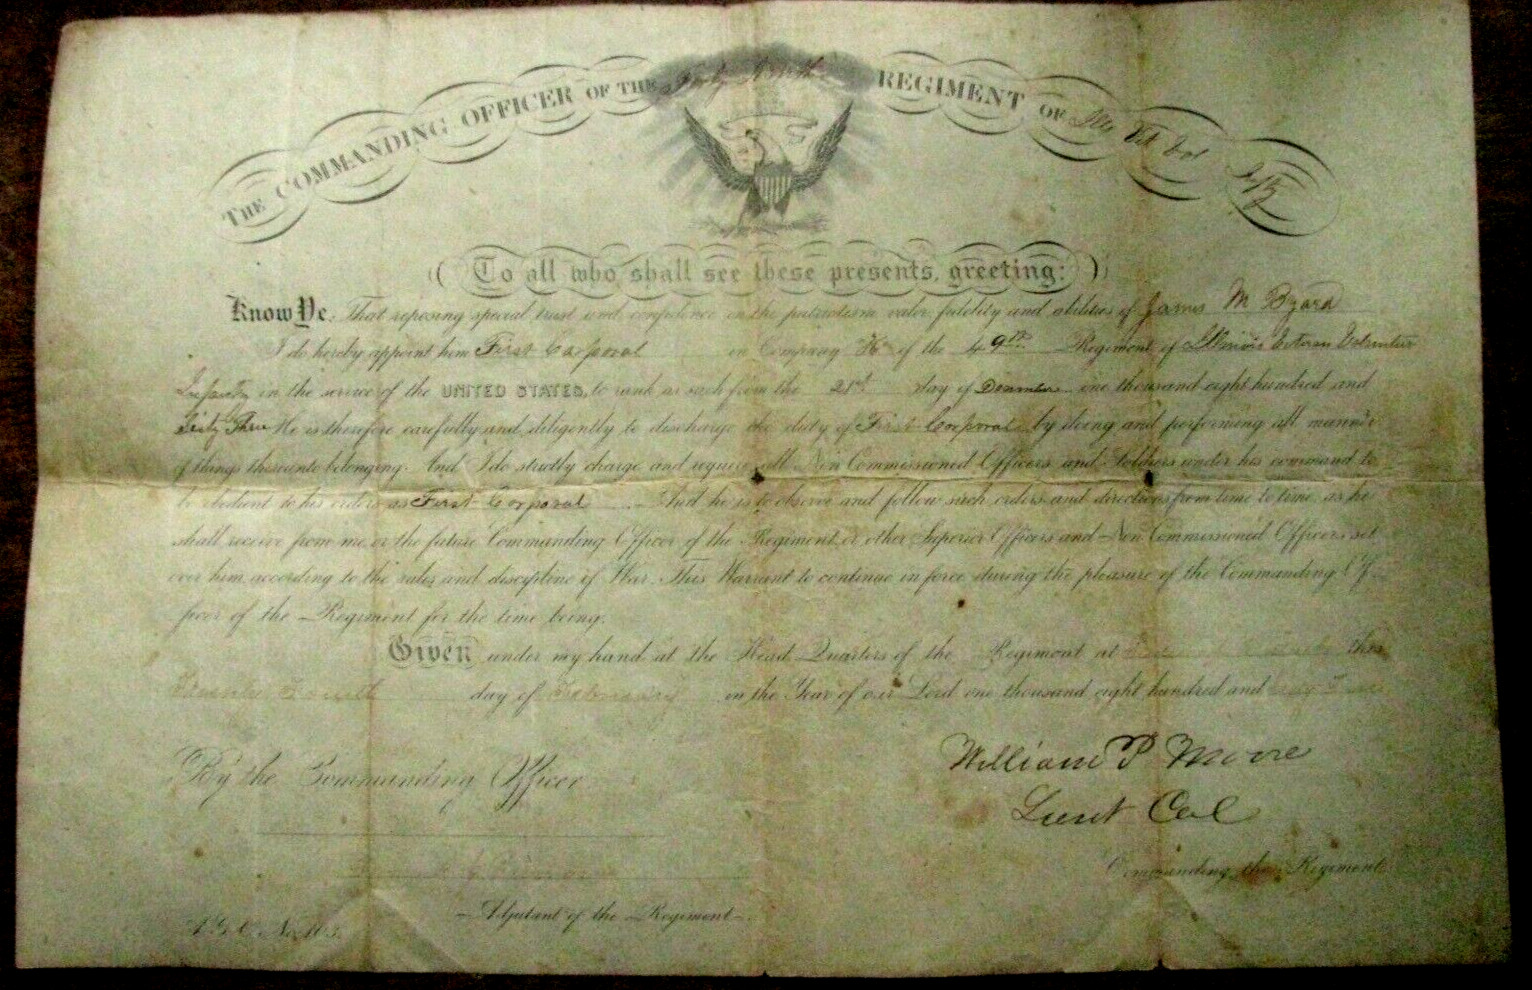 THE COMMANDING OFFICER OF THE Forty Ninth REGIMENT OF Ills Vet Vol Infty
To all who shall see these presents, greeting:
Know Ye, That reposing special trust and confidence in the patriotism valor, fidelity and abilities of James M Byard
I do hereby appoint him First Corporal in Company "H" of the 49th Regiment of Illinois Veteran Volunteer
Infantry in the service of the UNITED STATES, to rank as such from the 21st day of December one thousand eight hundred and
Sixty Three He is therefore carefully and diligently to discharge the duty of First Corporal by doing and performing all manner
of things thereunto belonging. And I do strictly charge and require all Non Commissioned Officers and Soldiers under his command to
be obedient to his orders as First Corporal And he is to observe and follow such orders and directions from time to time, as he
shall receive from me, or the future Commanding Officer of the Regiment, or other Superior Officers and Non Commissioned Officers set
over him, according to the rules and discipline of War. This Warrant to continue in force during the pleasure of the Commanding Of-
ficer of the Regiment for the time being.
Given under my hand at the Head Quarters of the Regiment at this
day of February in the Year of our Lord one thousand eight hundred and
By the Commanding Officer
William P Moore
Lieut Col
Commanding the Regiment
Adjutant of the Regiment
A.G.O. No. 103.